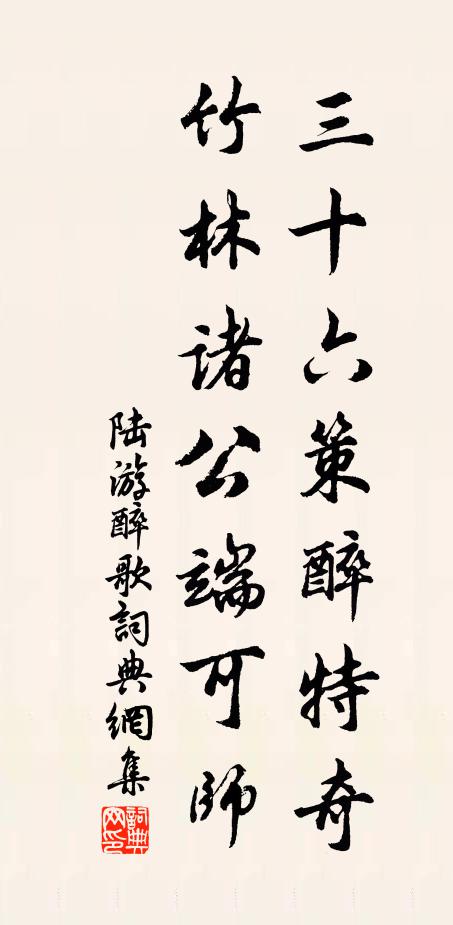 三十六策醉特奇
竹林诸公端可师
陆游醉歌詞典網集
詞典网印